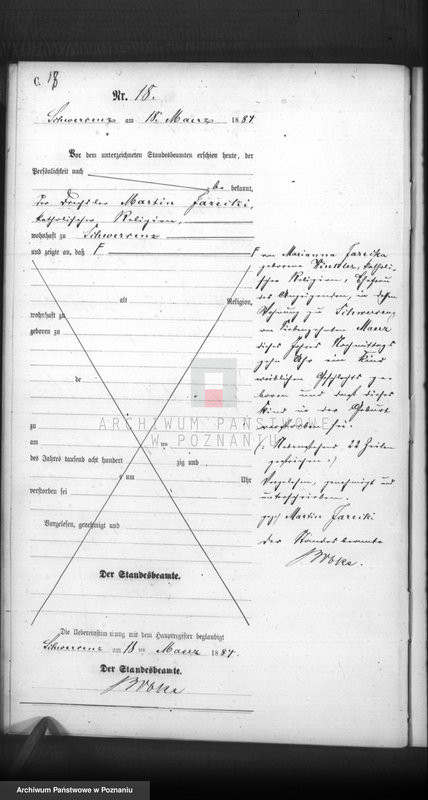 C. 18
Nr. 18.
Schwersenz am 18. Maerz 1884
Vor dem unterzeichneten Standesbeamten erschien heute, der
Persönlichkeit nach
be kannt,
der Drechsler Martin Jarecki,
katholischer Religion,
wohnhaft zu Schwersenz
und zeigte an, daß F
F von Marianna Jarecka
geborene Winkler, katholi-
scher Religion, Ehefrau
des Anzeigenden, in ihrer
Wohnung zu Schwersenz
am siebenzehnten Maerz
dieses Jahres Nachmittags
zehn Uhr ein Kind
weiblichen Geschlechts ge-
boren und daß dieses
Kind in der Geburt
verstorben sei.
(: Nebenstehend 22 Zeilen
gestrichen :)
Vorgelesen, genehmigt und
unterschrieben.
gez. Martin Jarecki
Der Standesbeamte
alt Religion,
wohnhaft zu
geboren zu
de
zu
am ten
des Jahres tausend acht hundert zig und
um Uhr
verstorben sei
Vorgelesen, genehmigt und
Der Standesbeamte.
Die Uebereinstimmung mit dem Hauptregister beglaubigt
Schwersenz am 18 ten Maerz 1884.
Der Standesbeamte.
ARCHIWUM PAŃSTWOWE
W POZNANIU
Archiwum Państwowe w Poznaniu